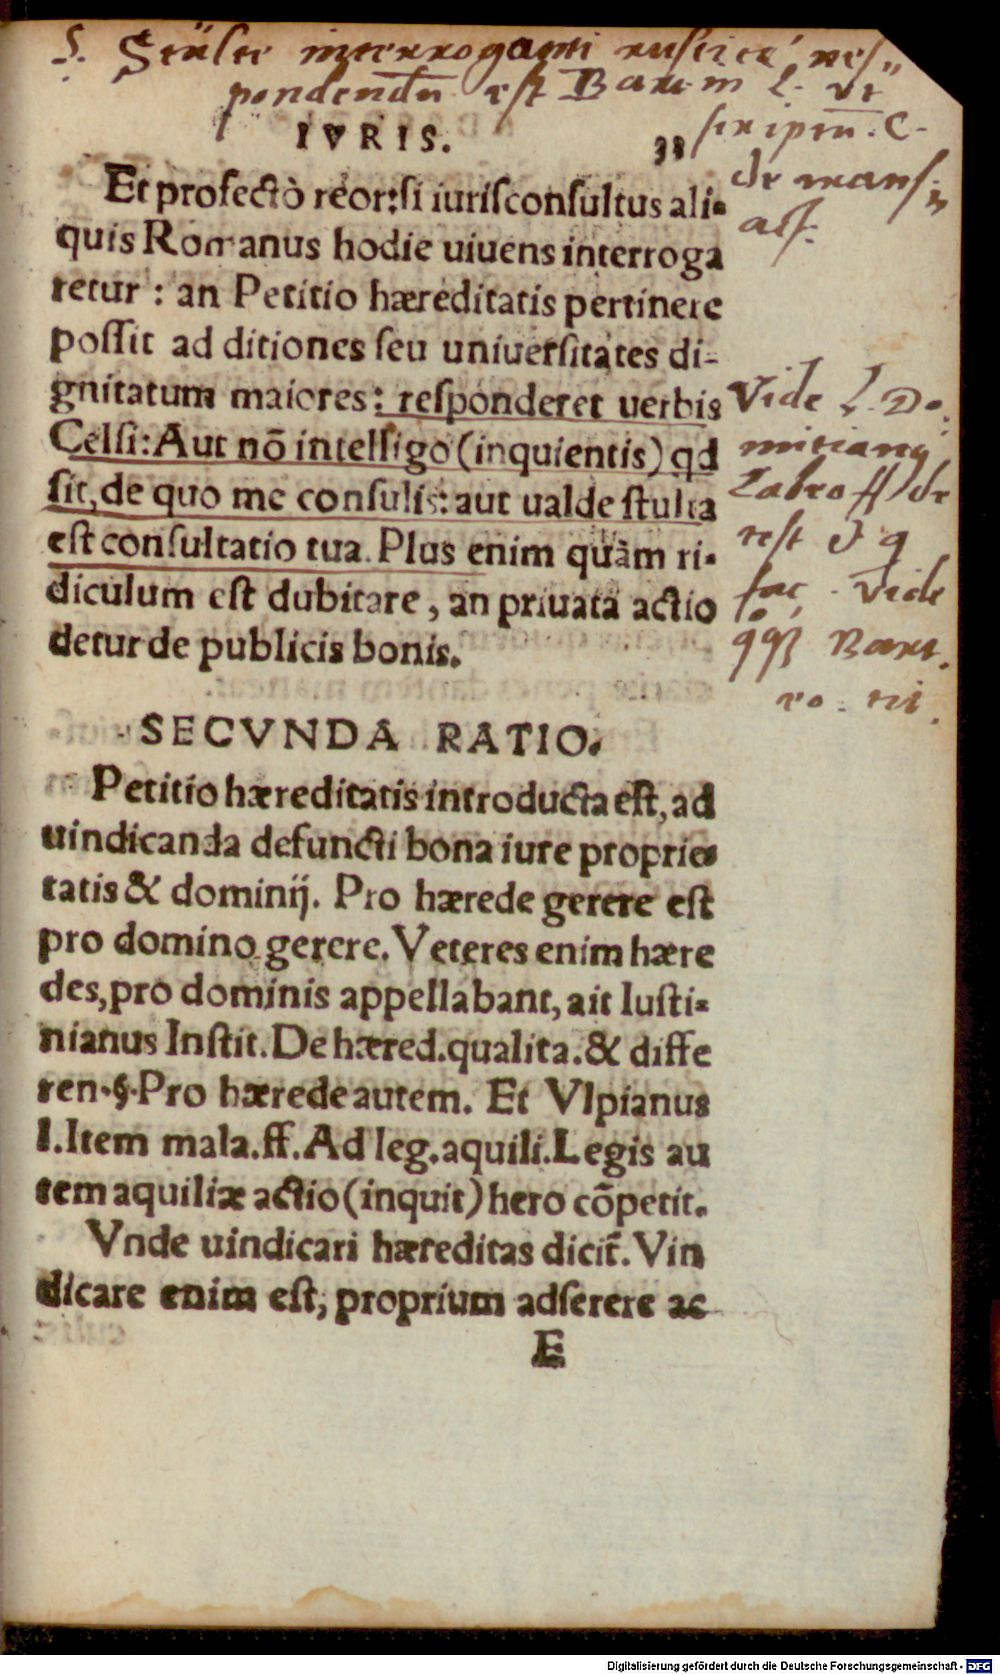 S. Stulte interroganti rustice res„
pondendū est Bart. in l. ut
scriptū. C.
IVRIS. 33
Et profectò reor: si iurisconsultus ali-
quis Romanus hodie uiuens interroga
retur : an Petitio hæreditatis pertinere
possit ad ditiones seu uniuersitates di-
gnitatum maiores: responderet uerbis
Celsi: Aut nō intelligo (inquientis) qd
sit, de quo me consulis: aut ualde stulta
est consultatio tua. Plus enim quàm ri-
diculum est dubitare, an priuata actio
detur de publicis bonis.
Vide l. Do-
mitianus
Labeo ff de
test
fac. Vide
Bart.
SECVNDA RATIO.
Petitio hæreditatis introducta est, ad
uindicanda defuncti bona iure proprie-
tatis & dominij. Pro hærede gerere est
pro domino gerere. Veteres enim hære
des, pro dominis appellabant, ait Iusti-
nianus Instit. De hæred. qualita. & diffe
ren. §. Pro hærede autem. Et Vlpianus
l. Item mala. ff. Ad leg. aquili. Legis au
tem aquiliæ actio (inquit) hero cōpetit.
Vnde uindicari hæreditas dicit̃. Vin
dicare enim est, proprium adserere ac
E
Digitalisierung gefördert durch die Deutsche Forschungsgemeinschaft - DFG